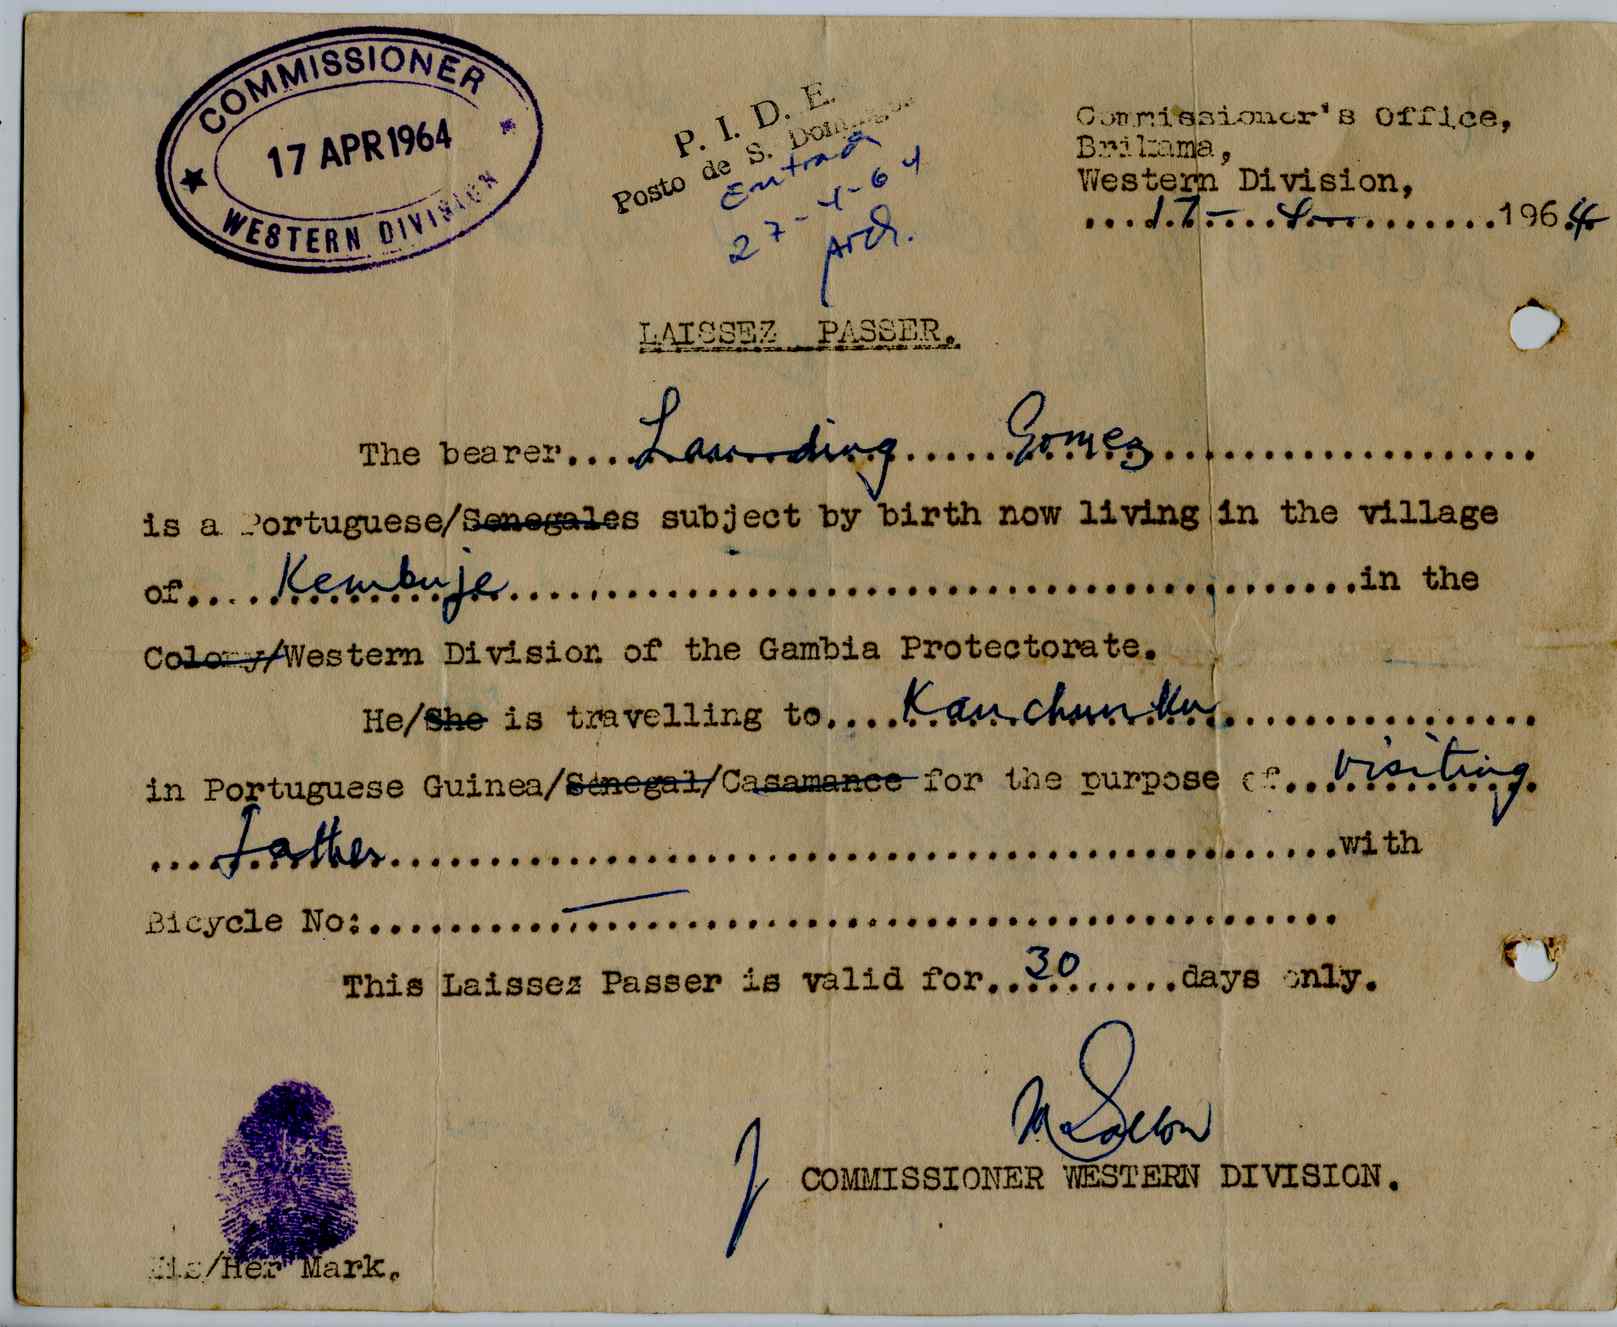 COMMISSIONER
17 APR 1964
WESTERN DIVISION
P. I. D. E.
Posto de S. Domingos
Entrada
27-4-64
Commissioner's Office,
Brikama,
Western Division,
....17-....4-..........1964
LAISSEZ PASSER.
The bearer....Landing......Gomez...................
is a Portuguese/Senegales subject by birth now living in the village
of....Kembuje...........................................in the
Colony/Western Division of the Gambia Protectorate.
He/She is travelling to....Kanchunku................
in Portuguese Guinea/Senegal/Casamance for the purpose of..visiting
....father................................................with
Bicycle No:..................................................
This Laissez Passer is valid for..30.......days only.
COMMISSIONER WESTERN DIVISION.
His/Her Mark.